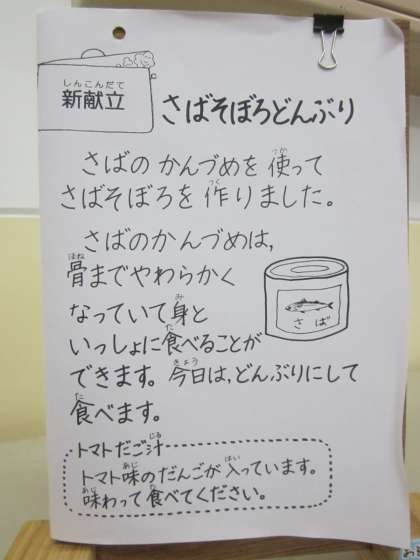 しんこんだて
新献立
さばそぼろどんぶり
さばの かんづめを 使って
つか
さばそぼろを 作りました。
つく
さばのかんづめは,
骨までやわらかく
ほね
なっていて身と
み
いっしょに食べることが
た
できます。今日は,どんぶりにして
きょう
食べます。
た
さば
トマトだご汁
じる
トマト味のだんごが 入っています。
あじ
はい
味わって 食べてください。
あじ
た